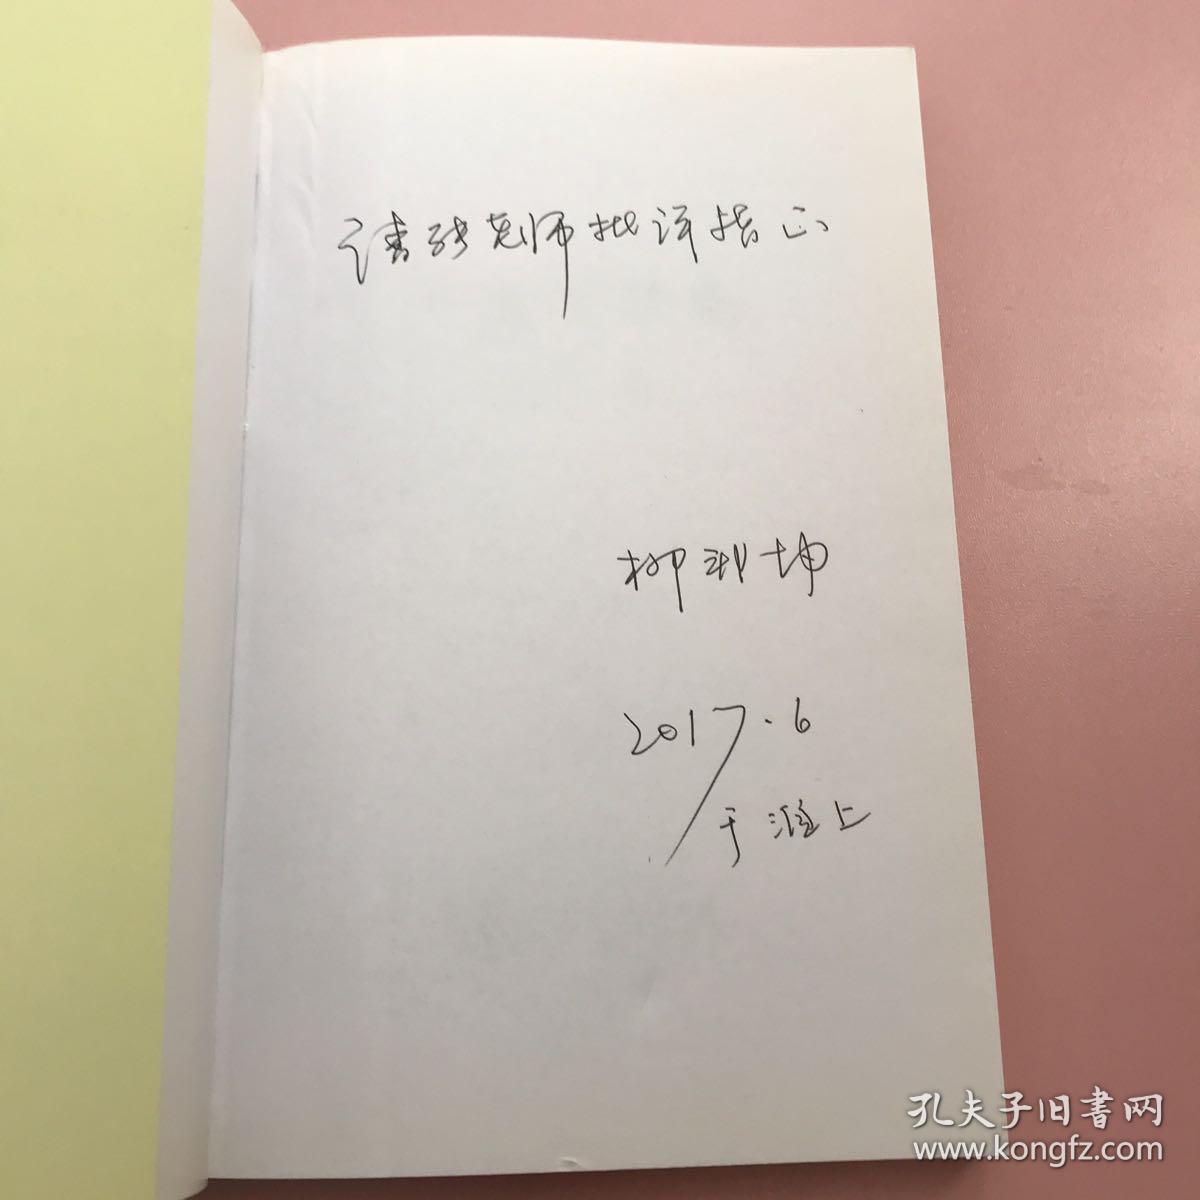 请张老师批评指正
柳邦坤
2017.6
于淮上
孔夫子旧书网
www.kongfz.com